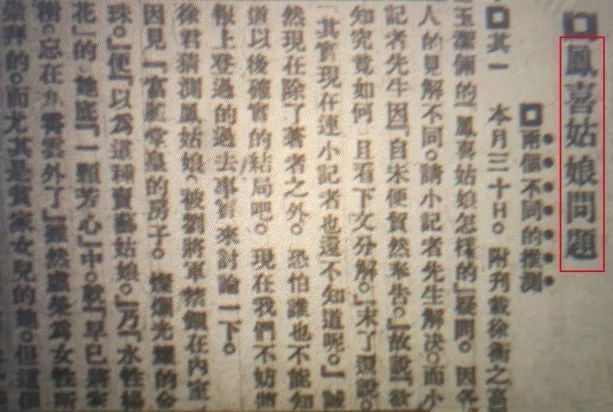 鳳喜姑娘問題
兩個不同的推測
其一 本月三十日。附刊載徐衡之富
玉潔佩的「鳳喜姑娘怎樣的」疑問。因各
人的見解不同。請小記者先生解决。而小
記者先生因「自未便貿然奉告。」故說「欲
知究竟如何 且看下文分解。」末了還說。
「其實現在連小記者也還不知道呢。」誠
然現在除了著者之外。恐怕誰也不能知
道以後確實的結局吧。現在我們不妨
報上登過的過去事實來討論一下。
徐君猜測鳳姑娘。被劉將軍禁錮在內室。
因見「富麗堂皇的房子。燦爛光耀的金
珠。」便「以爲這種賣藝姑娘。」乃「水性楊
花」的 她底「一顆芳心」中。「早已將家
樹。忘在九霄雲外了」雖然虛榮爲女性所
崇拜的。而尤其是貧家女兒的她。但這個